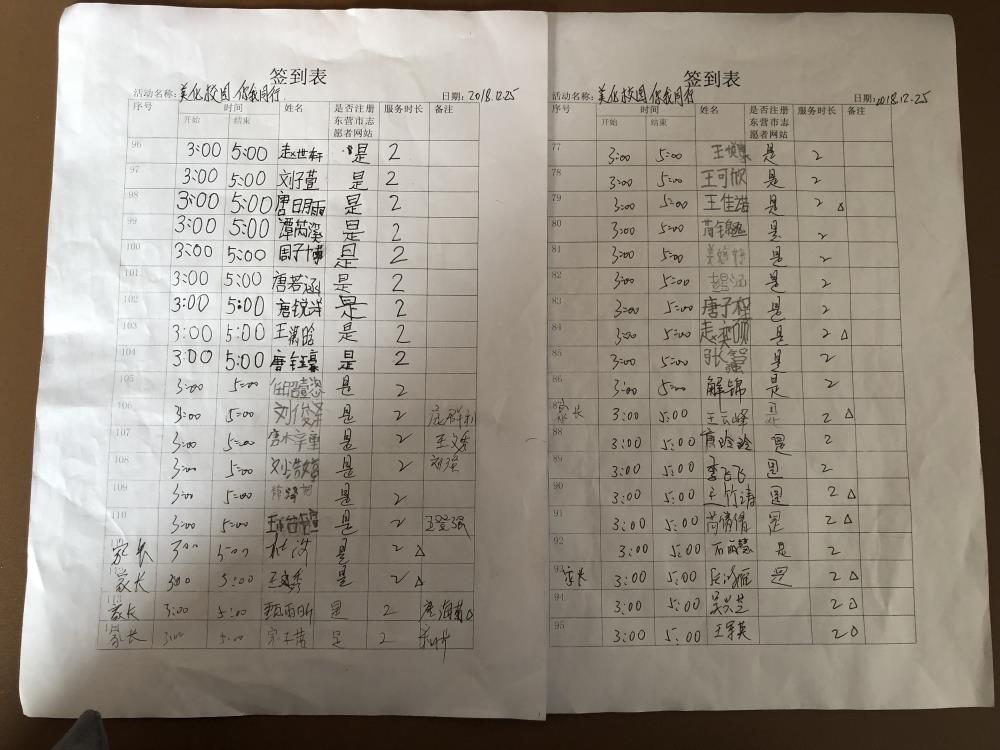 签到表
活动名称：美化校园 你我同行 日期：2018.12.25
序号 时间 姓名 是否注册东营市志愿者网站 服务时长 备注
开始 结束
96 3:00 5:00 赵世轩 是 2
97 3:00 5:00 刘子萱 是 2
98 3:00 5:00 唐明雨 是 2
99 3:00 5:00 谭芮溪 是 2
100 3:00 5:00 周子博 是 2
101 3:00 5:00 唐若涵 是 2
102 3:00 5:00 唐锐洋 是 2
103 3:00 5:00 王漪晗 是 2
104 3:00 5:00 唐钰豪 是 2
105 3:00 5:00 是 2
106 3:00 5:00 刘俊泽 是 2
107 3:00 5:00 是 2 王文秀
108 3:00 5:00 刘浩 是 2 刘强
109 3:00 5:00 是 2
110 3:00 5:00 是 2 王登强
家长 3:00 5:00 杜波 是 2 △
家长 3:00 5:00 王文秀 是 2 △
113 家长 3:00 5:00 甄雨昕 是 2 △
家长 3:00 5:00 是 2
签到表
活动名称：美化校园 你我同行 日期：2018.12.25
序号 时间 姓名 是否注册东营市志愿者网站 服务时长 备注
开始 结束
77 3:00 5:00 是 2
78 3:00 5:00 王可欣 是 2
79 3:00 5:00 王佳浩 是 2 △
80 3:00 5:00 是 2
81 3:00 5:00 是 2
82 3:00 5:00 是 2
83 3:00 5:00 唐子程 是 2
84 3:00 5:00 赵奕 是 2 △
85 3:00 5:00 是 2
86 3:00 5:00 解锦 是 2
家长 3:00 5:00 王云峰 是 2 △
88 3:00 5:00 唐玲玲 是 2
89 3:00 5:00 李飞飞 是 2
90 3:00 5:00 王竹涛 是 2 △
91 3:00 5:00 尚倩倩 是 2 △
92 3:00 5:00 石 慧 是 2
93 家长 3:00 5:00 是 2 △
94 3:00 5:00 吴兴芝 2 △
95 3:00 5:00 王军英 2 △